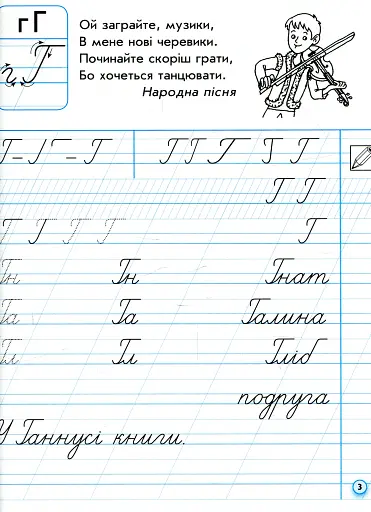 гГ
Ой заграйте, музики,
В мене нові черевики.
Починайте скоріш грати,
Бо хочеться танцювати.
Народна пісня
г Г
Г Г Г Г Г
Г Г
Г Г Г Г Г
Гн Гн Гнат
Га Га Галина
Гл Гл Гліб
подруга
У Ганнусі книги.
3